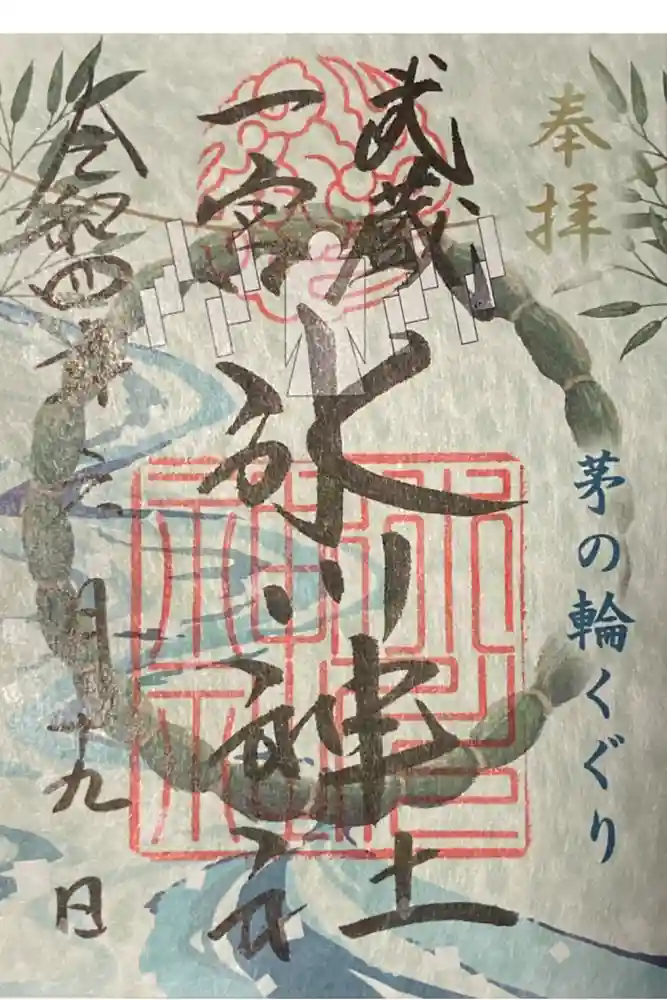 奉拝
茅の輪くぐり
武蔵
一宮
氷川神社
令和四年六月十九日